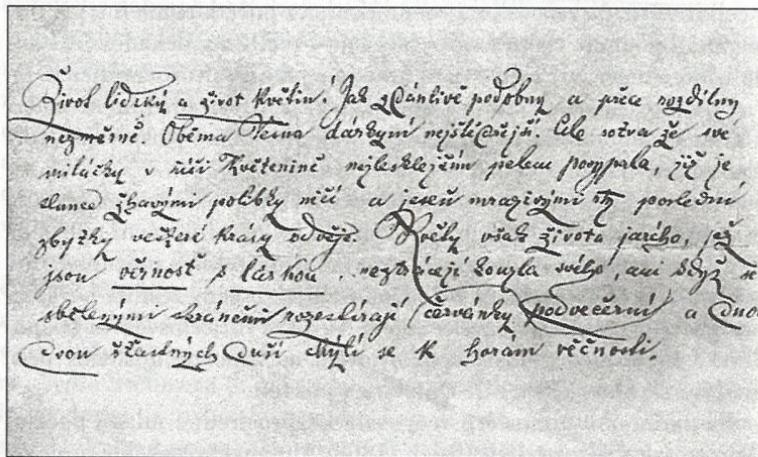 Život lidský a život květin! Jak zdánlivě podobny a přece rozdílny
nezměrně. Oběma Vesna dárkyní nejštědřejší. Ale sotva že své
miláčky v říši Květenině nejlesklejším pelem posypala, již je
slunce žhavými polibky ničí a jeseň mrazivými rty poslední
zbytky veškeré krásy odvěje. Květy však života jarého, jež
jsou věrnost s láskou, neztrácejí kouzla svého, ani když se
sbělenými skráněmi rozestírají červánky podvečerní a
dvou šťastných duší chýlí se k horám věčnosti.